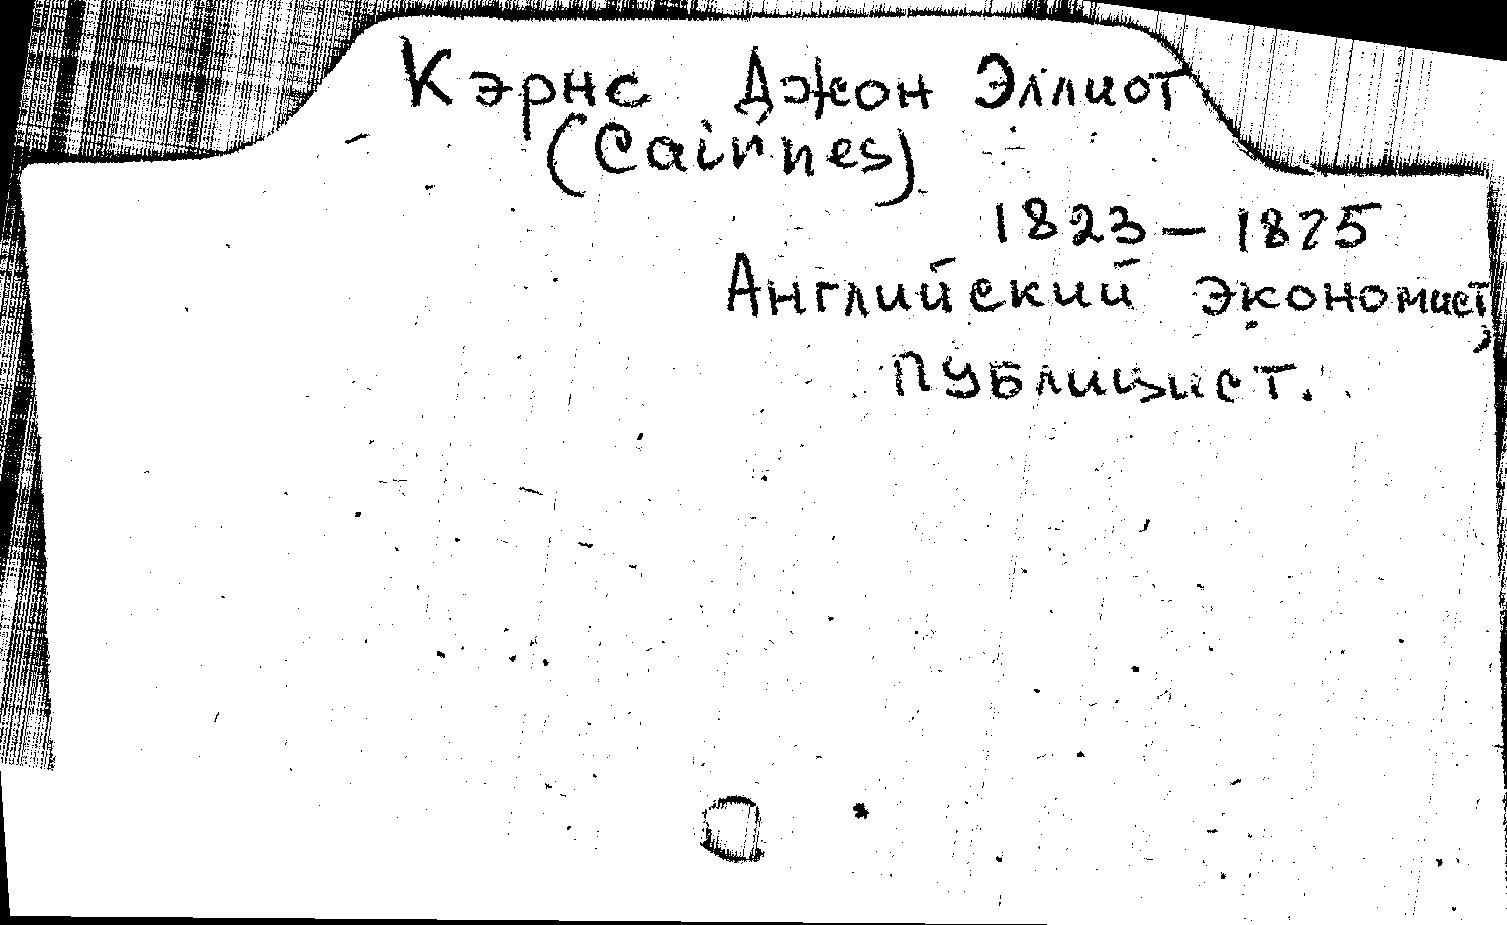 Кэрнс Джон Эллиот
(Cairnes)
1823 – 1875
Английский экономист,
публицист.